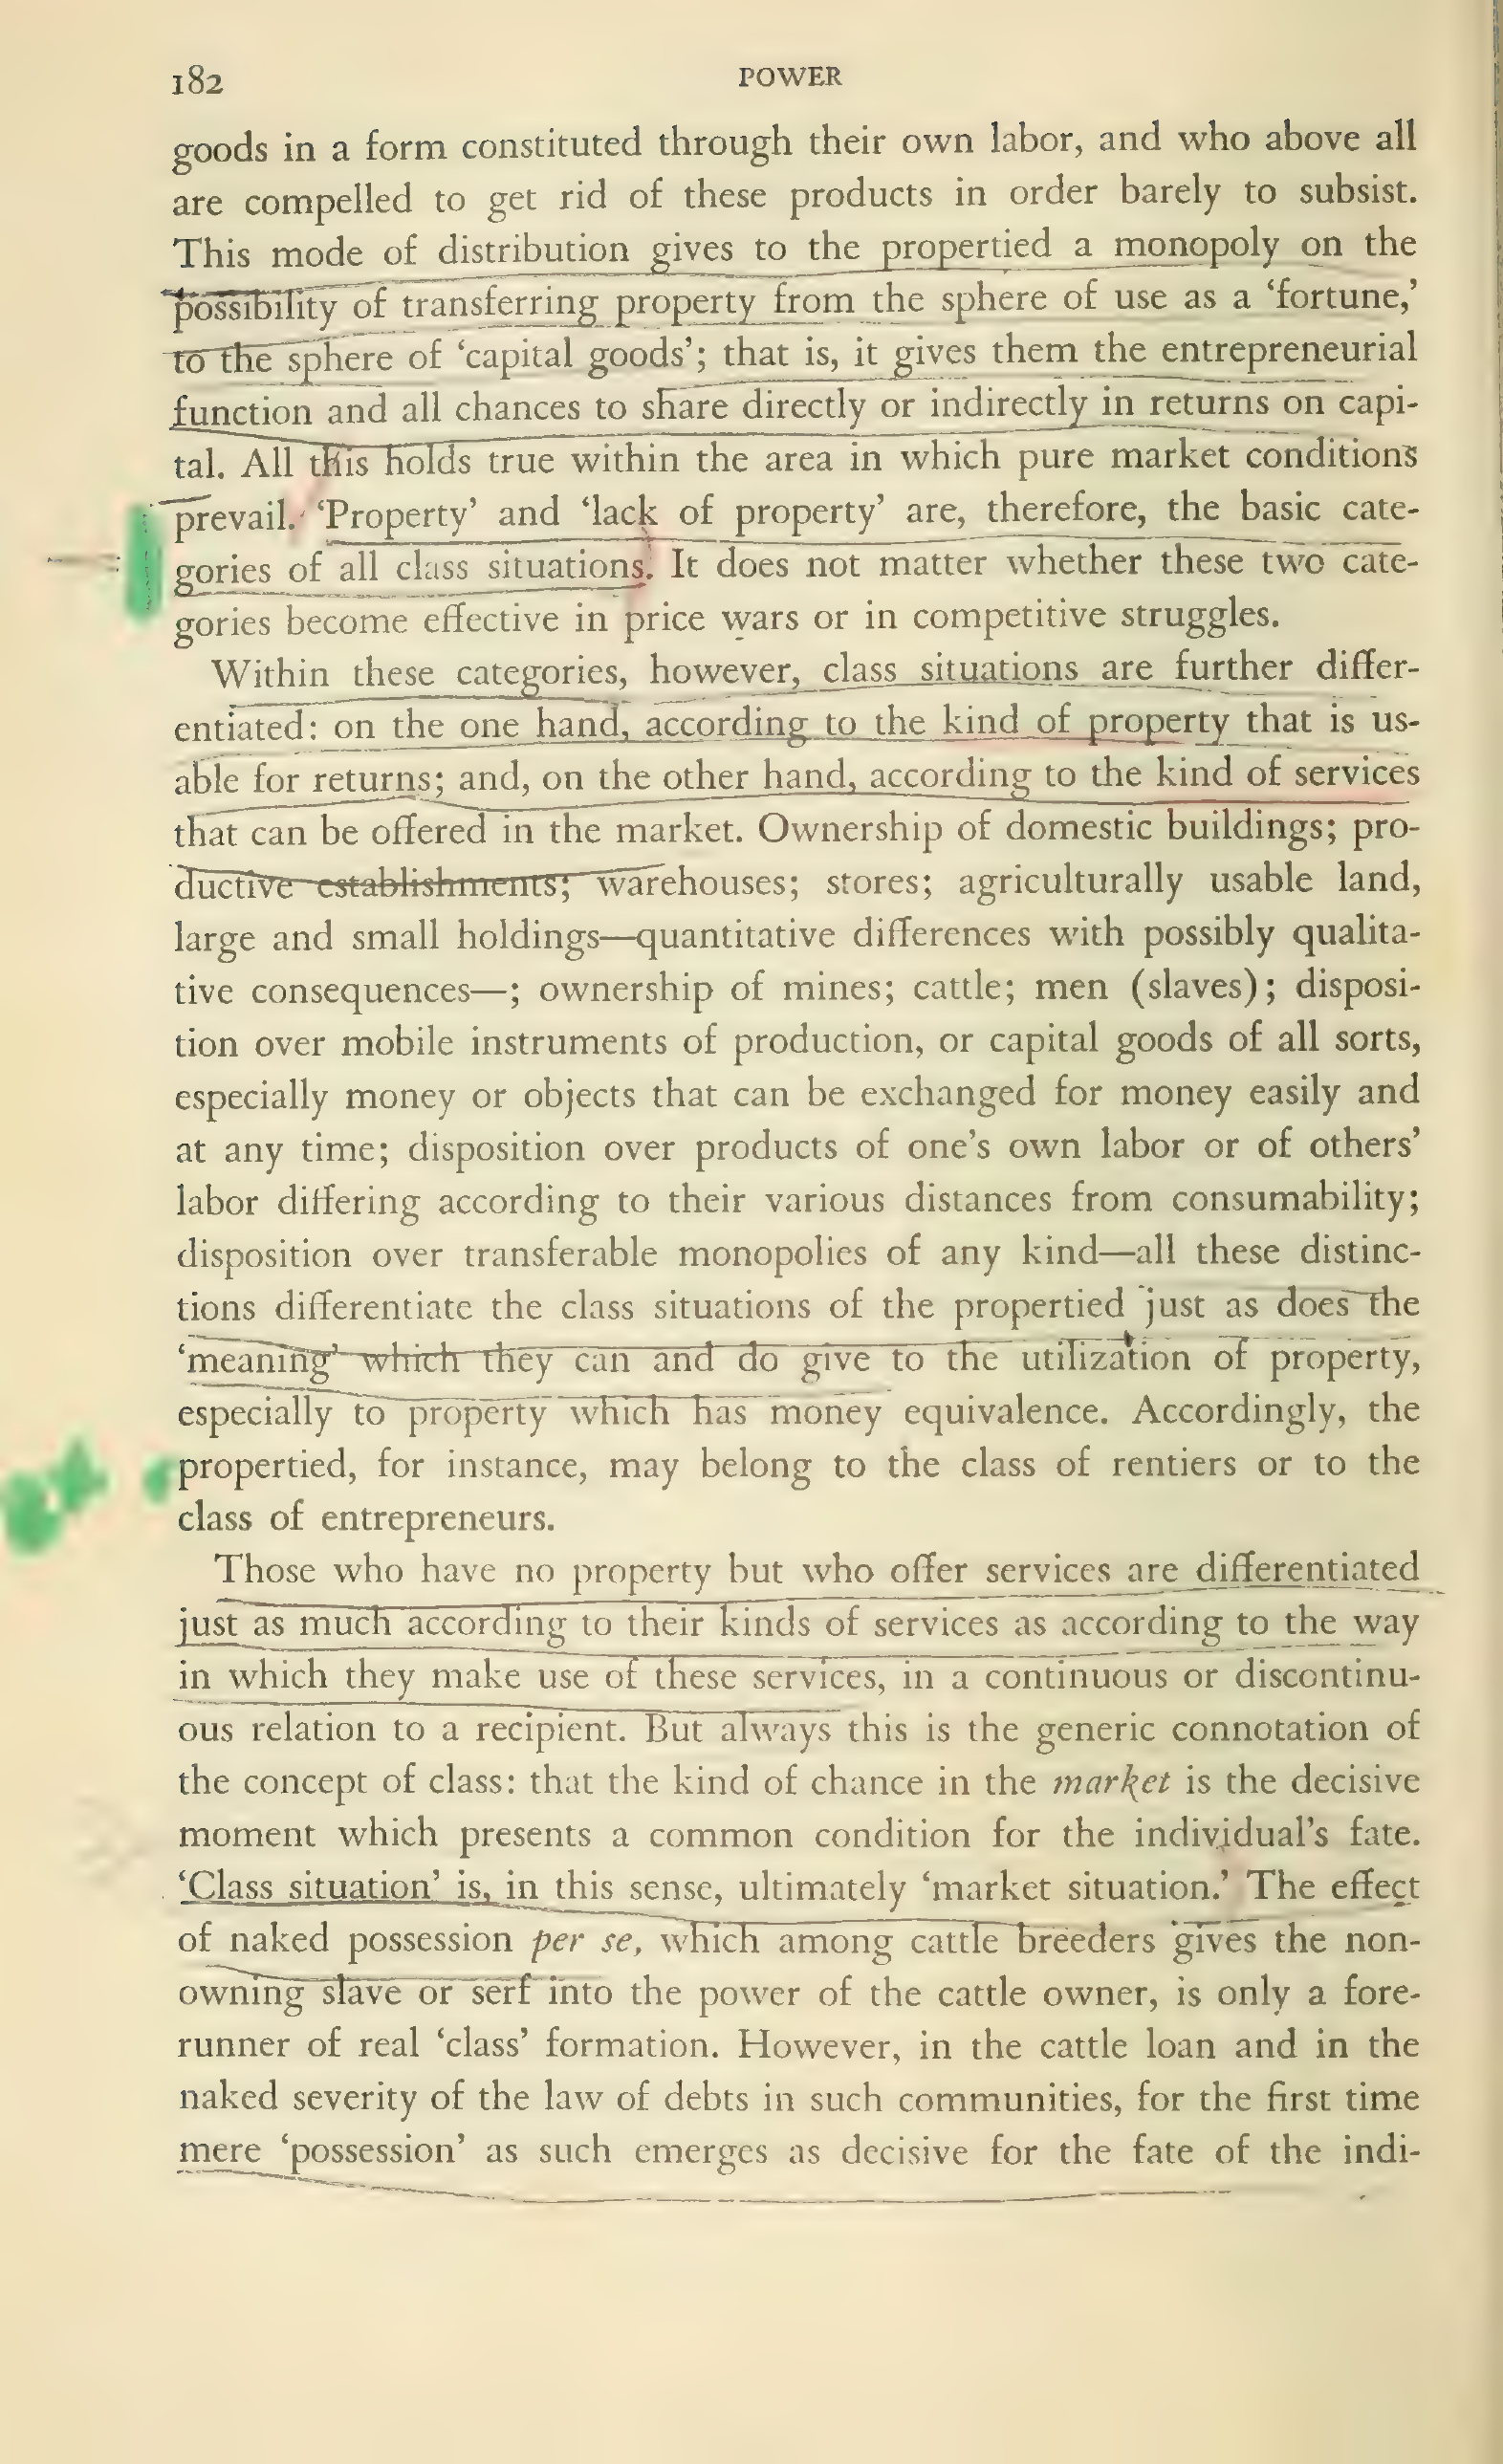 182 POWER
goods in a form constituted through their own labor, and who above all
are compelled to get rid of these products in order barely to subsist.
This mode of distribution gives to the propertied a monopoly on the
possibility of transferring property from the sphere of use as a ‘fortune,’
to the sphere of ‘capital goods’; that is, it gives them the entrepreneurial
function and all chances to share directly or indirectly in returns on capi-
tal. All this holds true within the area in which pure market conditions
prevail. ‘Property’ and ‘lack of property’ are, therefore, the basic cate-
gories of all class situations. It does not matter whether these two cate-
gories become effective in price wars or in competitive struggles.
Within these categories, however, class situations are further differ-
entiated: on the one hand, according to the kind of property that is us-
able for returns; and, on the other hand, according to the kind of services
that can be offered in the market. Ownership of domestic buildings; pro-
ductive establishments; warehouses; stores; agriculturally usable land,
large and small holdings—quantitative differences with possibly qualita-
tive consequences—; ownership of mines; cattle; men (slaves); disposi-
tion over mobile instruments of production, or capital goods of all sorts,
especially money or objects that can be exchanged for money easily and
at any time; disposition over products of one’s own labor or of others’
labor differing according to their various distances from consumability;
disposition over transferable monopolies of any kind—all these distinc-
tions differentiate the class situations of the propertied just as does the
‘meaning’ which they can and do give to the utilization of property,
especially to property which has money equivalence. Accordingly, the
propertied, for instance, may belong to the class of rentiers or to the
class of entrepreneurs.
Those who have no property but who offer services are differentiated
just as much according to their kinds of services as according to the way
in which they make use of these services, in a continuous or discontinu-
ous relation to a recipient. But always this is the generic connotation of
the concept of class: that the kind of chance in the market is the decisive
moment which presents a common condition for the individual’s fate.
‘Class situation’ is, in this sense, ultimately ‘market situation.’ The effect
of naked possession per se, which among cattle breeders gives the non-
owning slave or serf into the power of the cattle owner, is only a fore-
runner of real ‘class’ formation. However, in the cattle loan and in the
naked severity of the law of debts in such communities, for the first time
mere ‘possession’ as such emerges as decisive for the fate of the indi-